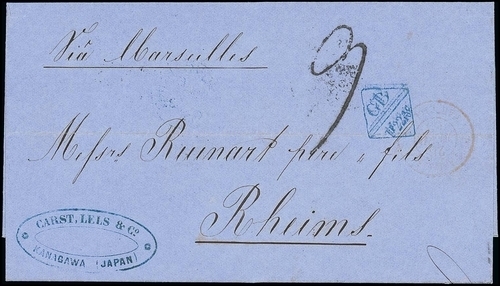 Via Marseilles
GB
1F62⁸⁄₁₀c
Messrs Ruinart père & fils.
Rheims.
CARST, LELS & Co.
KANAGAWA (JAPAN)